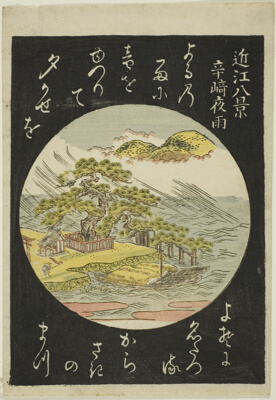 近江八景
辛崎夜雨
よるの
雨に
音を
ゆつり
て
夕かせを
よそに
名たつ
る
から
さき
の
まつ